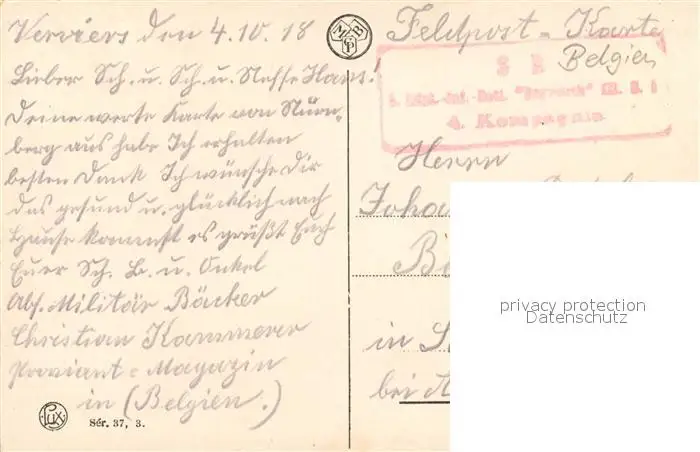 Verviers den 4.10.18
Lieber Sch. u. Sch. u. Neffe Hans!
Deine werte Karte von Nürn-
berg aus habe Ich erhalten
besten Dank Ich wünsche Dir
das gesund u. glücklich nach
Hause kommst es grüßt Euch
Euer Sch. B. u. Onkel
Abs. Militär Bäcker
Christian Kammerer
Proviant-Magazin
in (Belgien.)
Lux
Sér. 37, 3.
MBCP
Feldpost-Karte
Belgien
S B
4. Kompagnie
Herrn
Joha
in
bei
privacy protection
Datenschutz